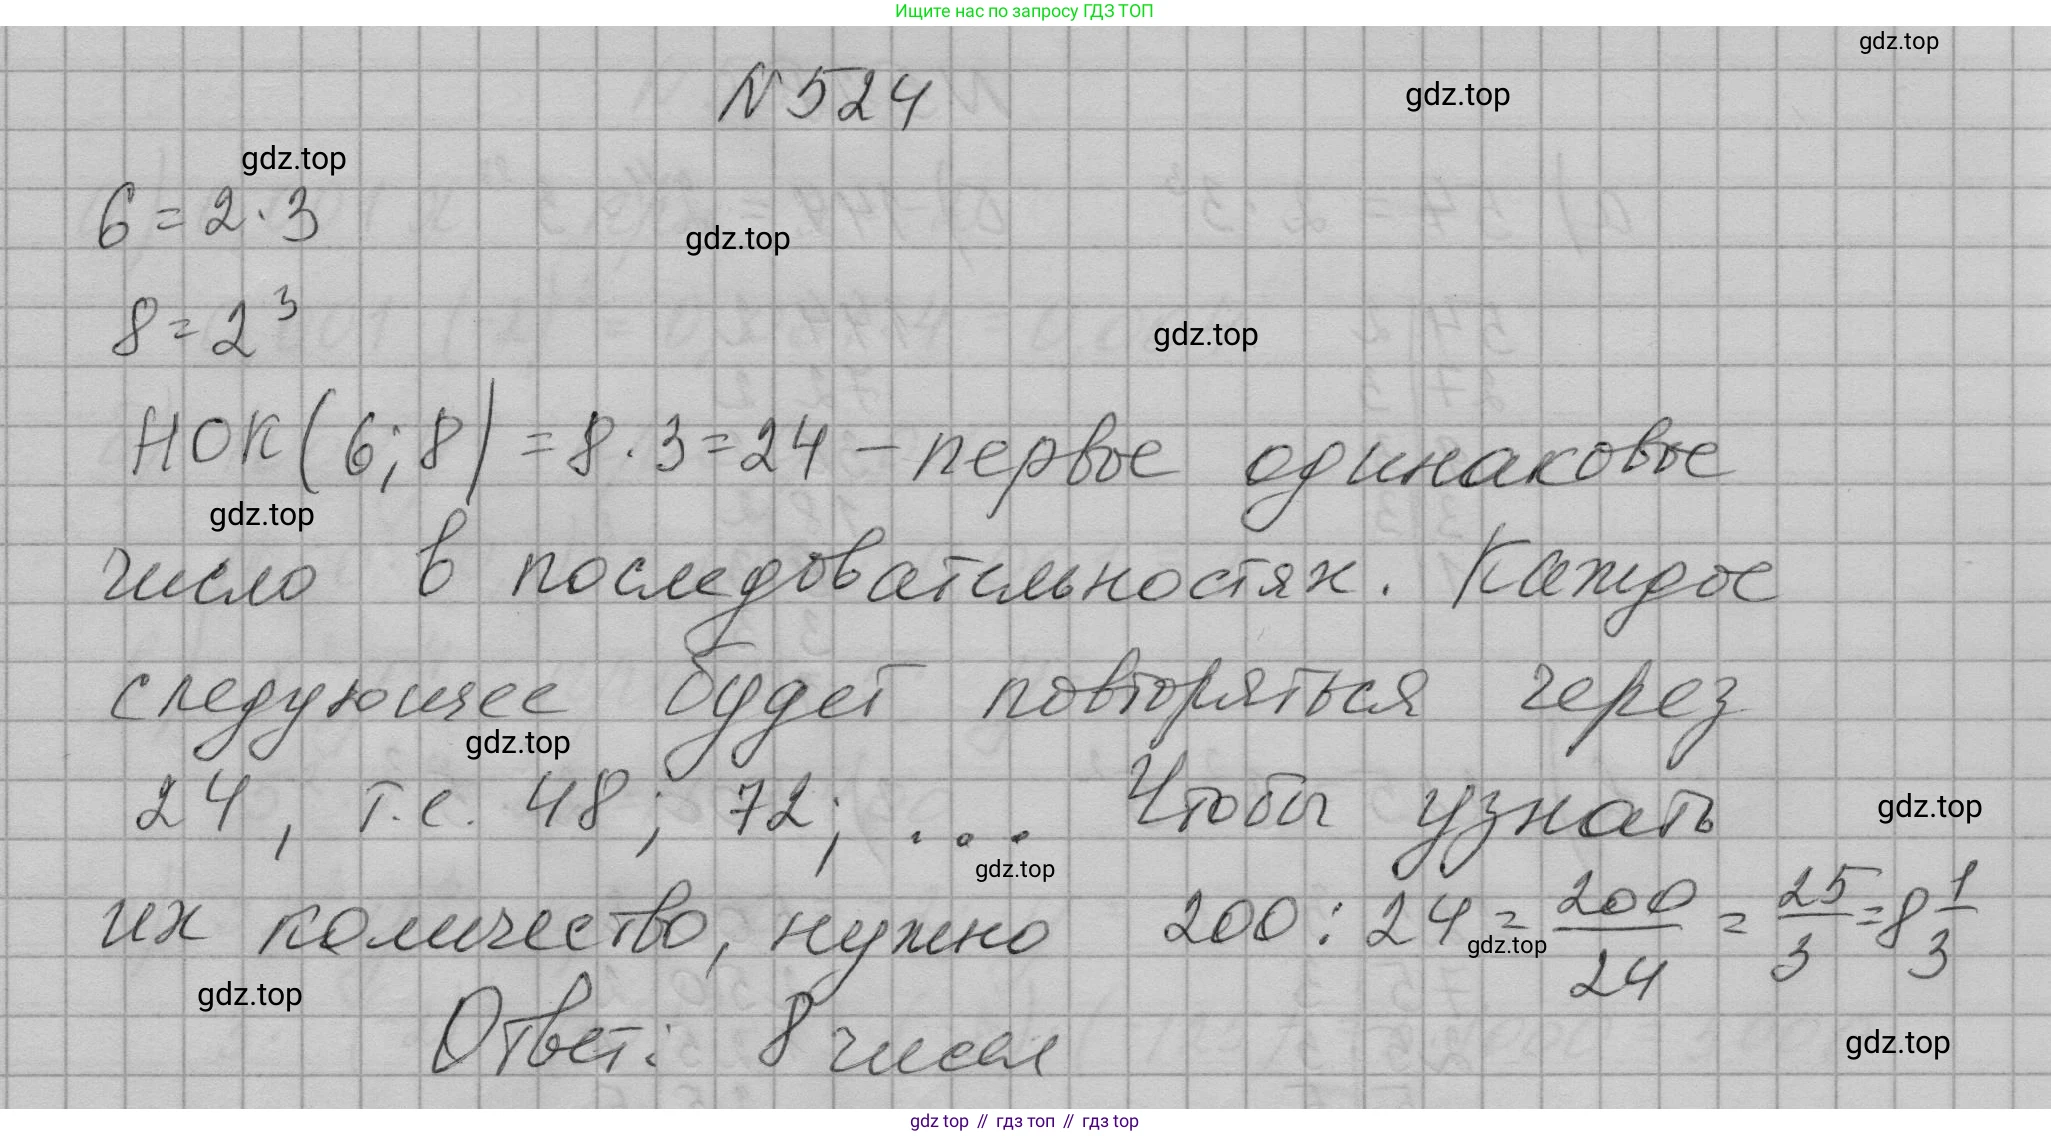 Ищите нас по запросу ГДЗ ТОП
gdz.top
N 524
gdz.top
gdz.top
6 = 2 · 3
gdz.top
8 = 2³
gdz.top
НОК(6; 8) = 8 · 3 = 24 – первое одинаковое
gdz.top
число в последовательностях. Каждое
следующее будет повторяться через
gdz.top
24, т.е. 48; 72; ... Чтобы узнать
gdz.top
gdz.top
их количество, нужно 200 : 24 = 200/24 = 25/3 = 8 1/3
gdz.top
gdz.top
Ответ: 8 чисел
gdz.top
gdz top // гдз топ // гдз top